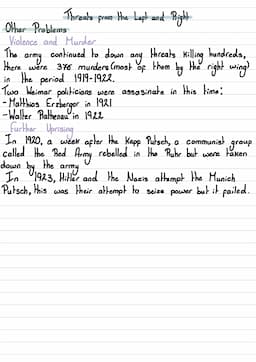 Threats from the Left and Right
Other Problems
Violence and Murder
The army continued to down any threats killing hundreds,
there were 376 murders (most of them by the right wing)
in the period 1919-1922.
Two Weimar politicians were assasinate in this time:
- Matthias Erzberger in 1921
- Walter Rathenau in 1922
Further Uprising
In 1920, a week after the Kapp Putsch, a communist group
called the Red Army rebelled in the Ruhr but were taken
down by the army
In 1923, Hitler and the Nazis attempt the Munich
Putsch, this was their attempt to seize power but it failed.